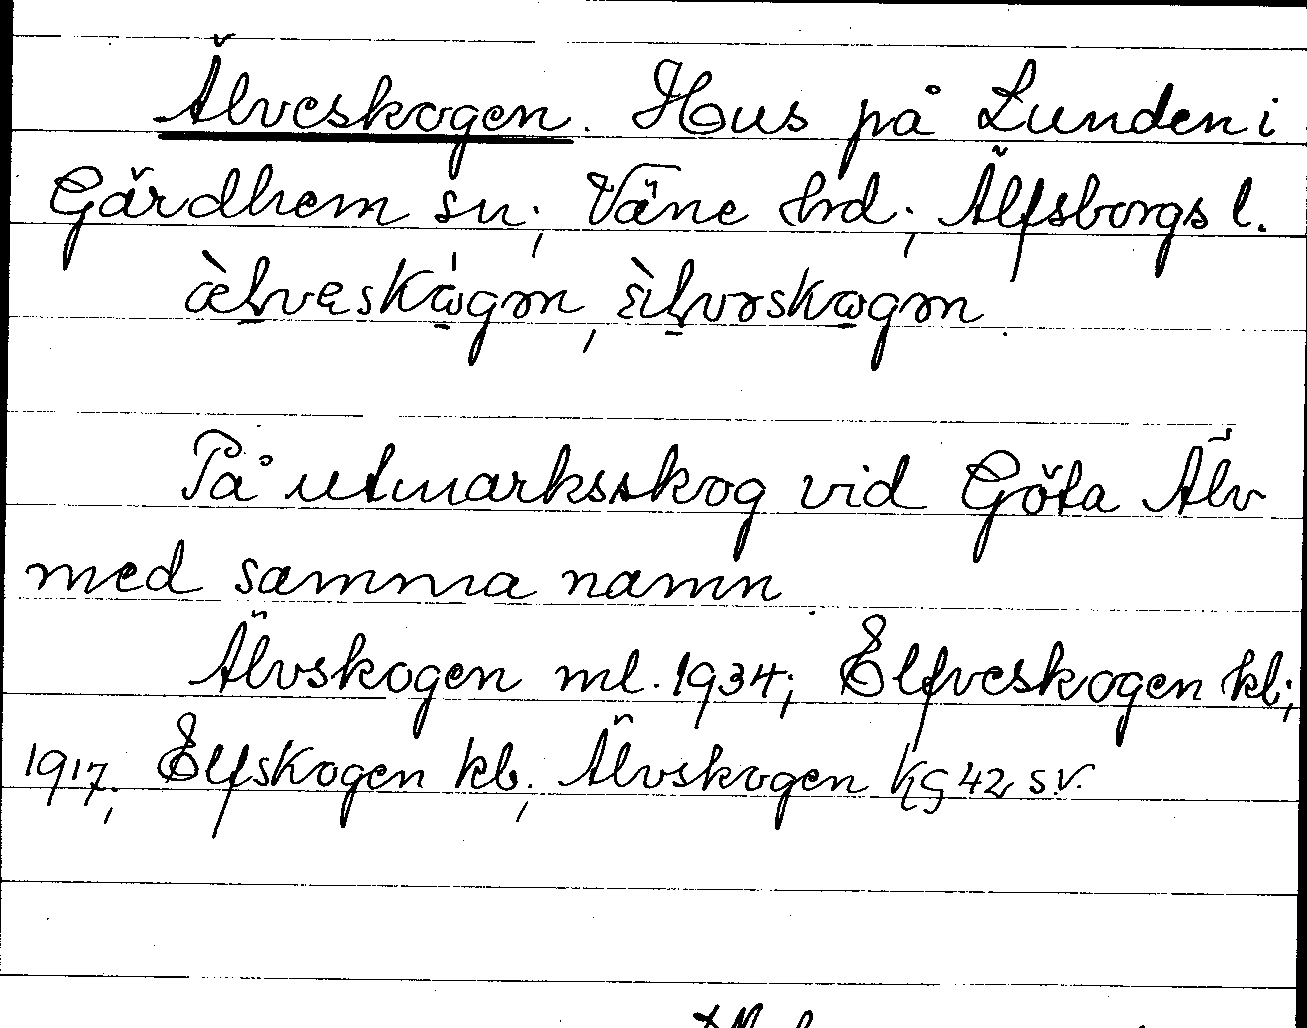 Älveskogen. Hus på Lunden i
Gärdhem sn; Väne hrd; Älfsborgs l.
På utmarksskog vid Göta Älv
med samma namn.
Älvskogen ml. 1934; Elfveskogen kb;
1917; Elfskogen kb; Älvskogen KG 42 s.v.